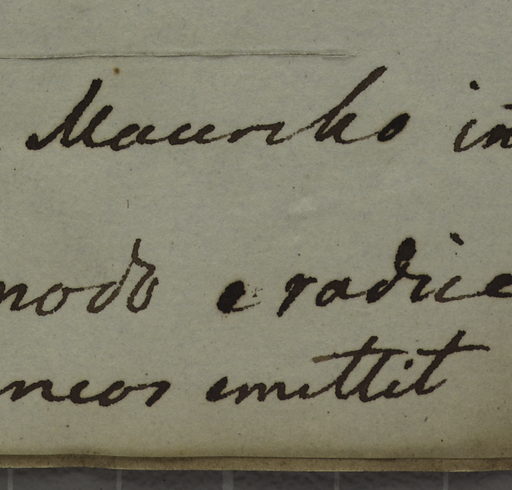 Mauritio in
modo e radice
neos emittit